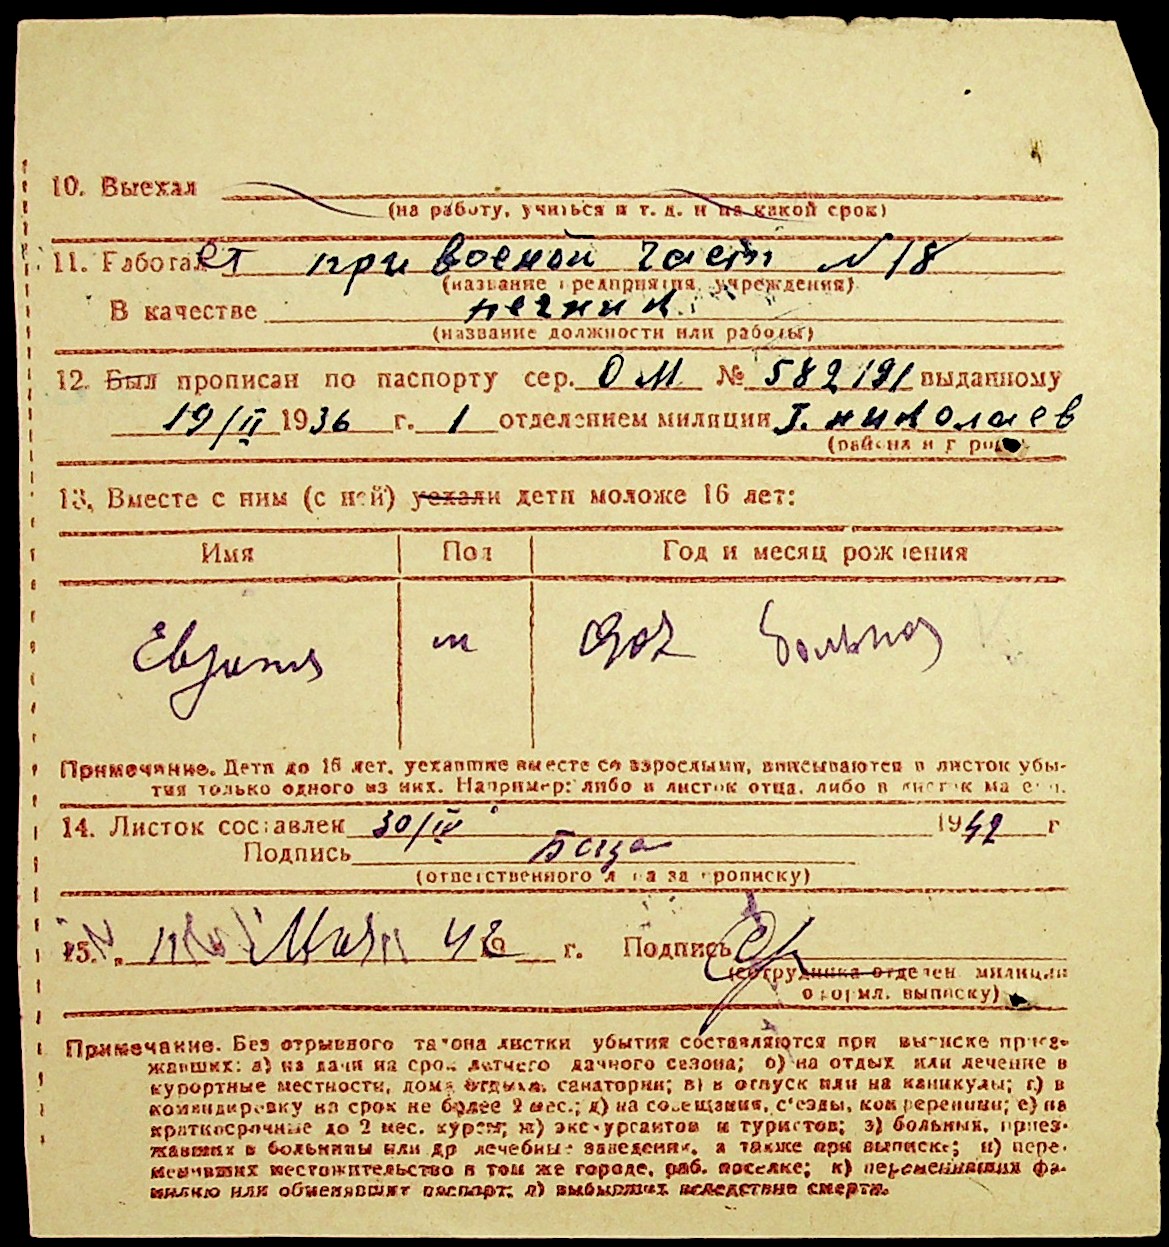 10. Выехал
(на работу, учиться и т. д. и на какой срок)
11. Работает при военой част N 18
(название предприятия, учреждения)
В качестве печник
(название должности или работы)
12. Был прописан по паспорту сер. ОМ № 582191 выданному
19/II 1936 г. 1 отделением милиции г. николаев
(района и г
13. Вместе с ним (с ней) уехали дети моложе 16 лет:
Имя Пол Год и месяц рождения
м
Примечание. Дети до 16 лет, уехавшие вместе со взрослыми, вписываются в листок убы-
тия только одного из них. Например: либо в листок отца, либо в листок матери.
14. Листок составлен 30/IV 1942 г
Подпись
(ответственного лица за прописку)
15. Мая 42 г. Подпись
(сотрудника отделен милиции
оформл. выписку)
Примечание. Без отрывного талона листки убытия составляются при выписке приез-
жавших: а) на дачи на срок летнего дачного сезона; б) на отдых или лечение в
курортные местности, дома отдыха, санатории; в) в отпуск или на каникулы; г) в
командировку на срок не более 2 мес.; д) на совещания, с'езды, конференции; е) на
краткосрочные до 2 мес. курсы; ж) экскурсантов и туристов; з) больных, приез-
жавших в больницы или др лечебные заведения, а также при выписке; и) пере-
менивших местожительство в том же городе, раб. поселке; к) переменивших фа-
милию или обменявших паспорт; л) выбывших вследствие смерти.